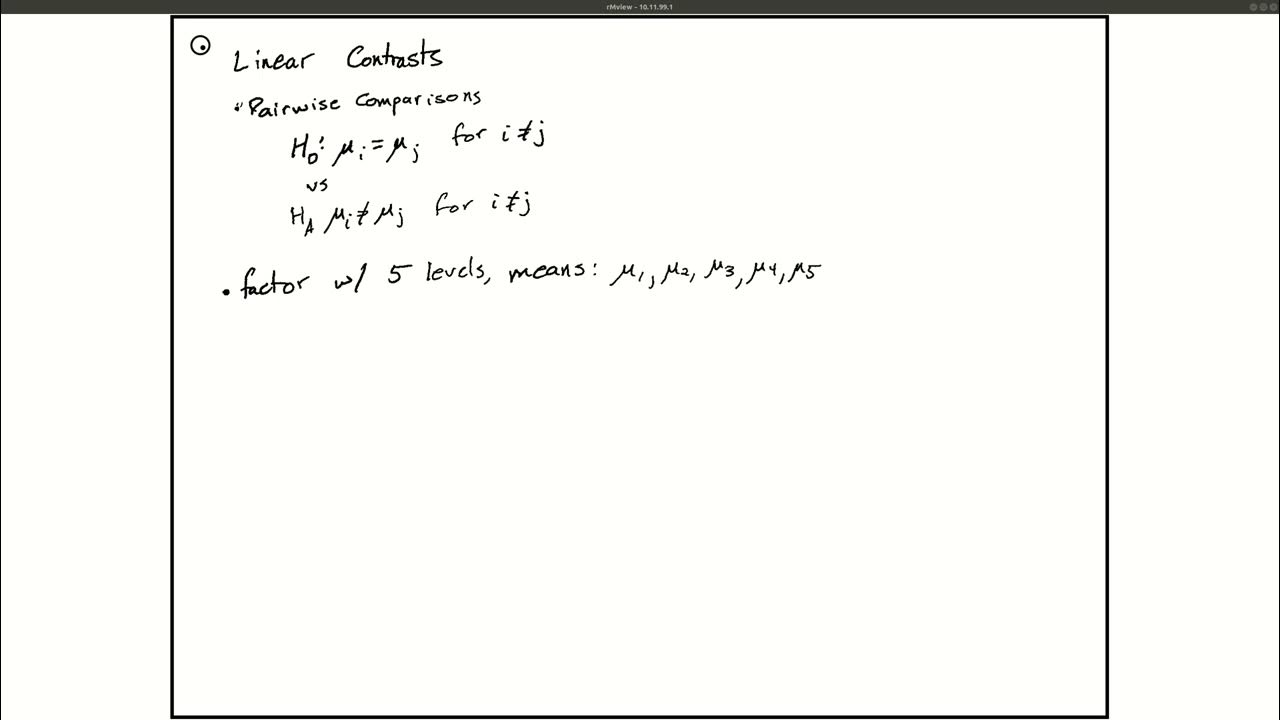 rMview - 10.11.99.1
Linear Contrasts
"Pairwise Comparisons
H₀: μᵢ = μⱼ for i ≠ j
vs
H_A μᵢ ≠ μⱼ for i ≠ j
• factor w/ 5 levels, means: μ₁, μ₂, μ₃, μ₄, μ₅